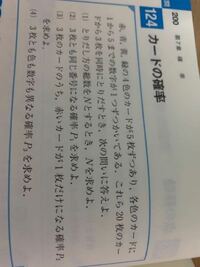 200 第7章 確率
124 カードの確率
赤,青,黄,緑の4色のカードが5枚ずつあり,各色のカードに
1から5までの数字が1つずつかいてある.これら20枚のカー
ドから3枚を同時にとりだすとき,次の問いに答えよ.
(1) とりだし方の総数をNとするとき,Nを求めよ.
(2) 3枚とも同じ番号になる確率P₁を求めよ.
(3) 3枚のカードのうち,赤いカードが1枚だけになる確率P₂
を求めよ.
(4) 3枚とも色も数字も異なる確率P₃を求めよ.